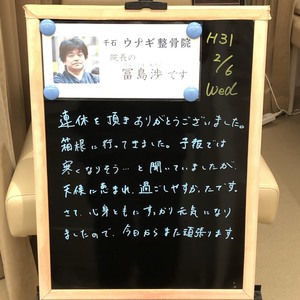 千石 ウナギ整骨院
院長の
冨島渉です
H31
2/6
Wed
連休を頂きありがとうございました。
箱根に行ってきました。予報では
寒くなりそう…と聞いていましたが、
天候に恵まれ、過ごしやすかったです。
さて、心身ともにすっかり元気になり
ましたので、今日からまた頑張ります。